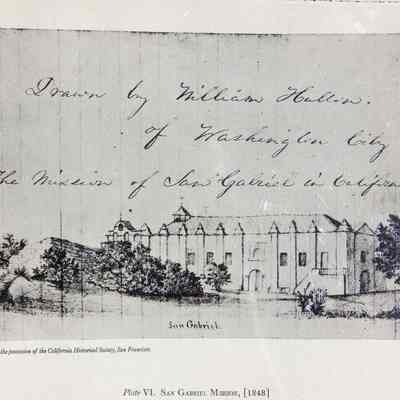 Drawn by William Hutton.
of Washington City
The Mission of San Gabriel in Californ
San Gabriel.
the possession of the California Historical Society, San Francisco.
Plate VI. San Gabriel Mission, [1848]